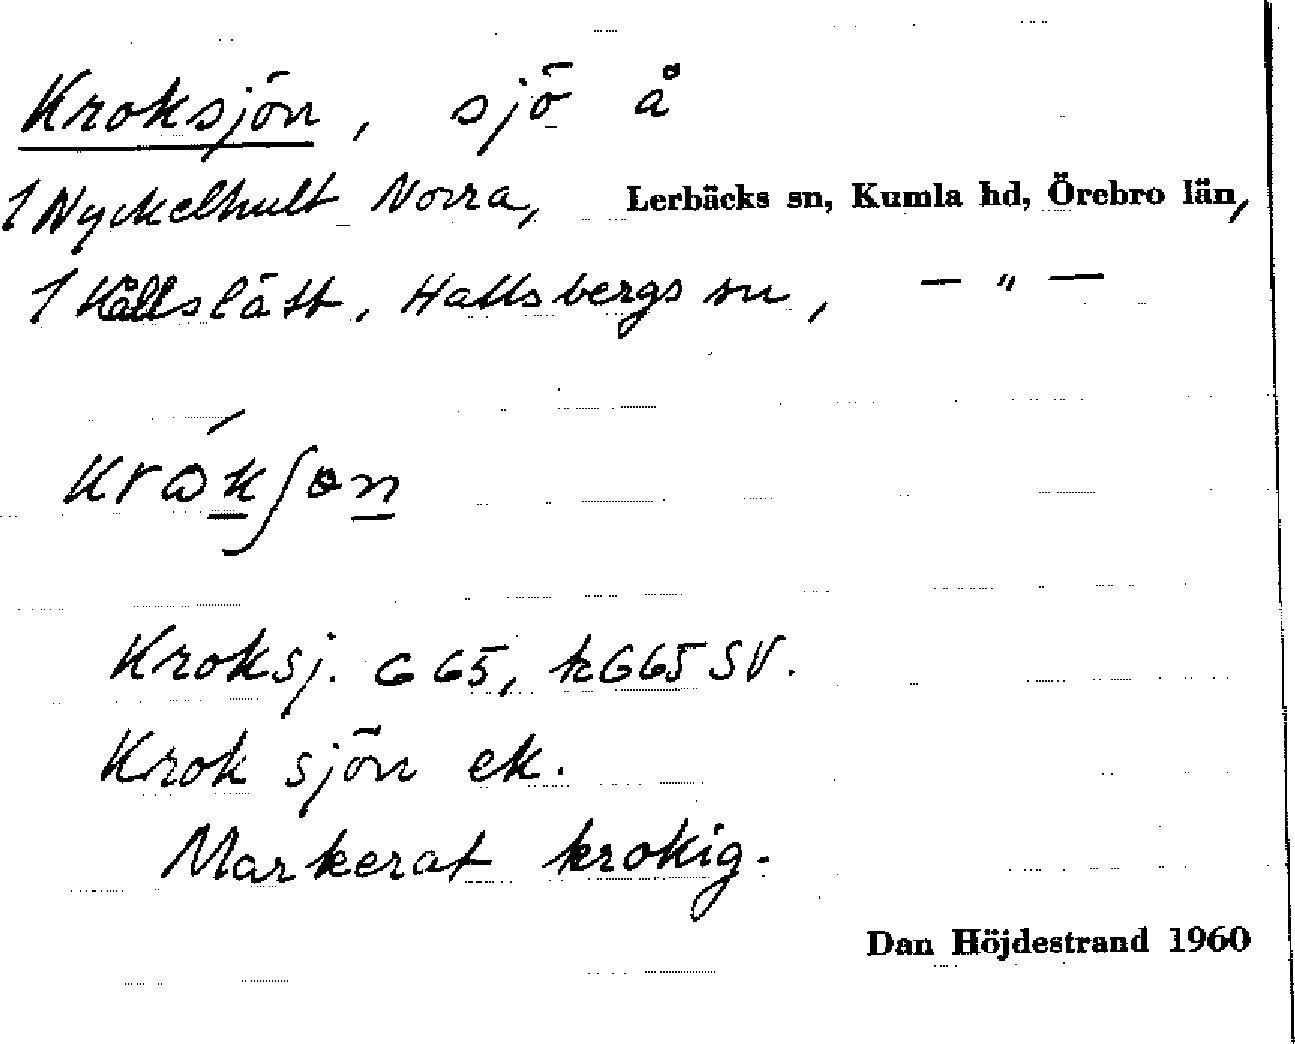 Kroksjön, sjö å
1 Nyckelhult Norra, Lerbäcks sn, Kumla hd, Örebro län,
1 Kållslätt, Hallsbergs sn, — " —
Kroksj. G 65, kG65 SV.
Krok sjön ek.
Markerat krokig.
Dan Höjdestrand 1960